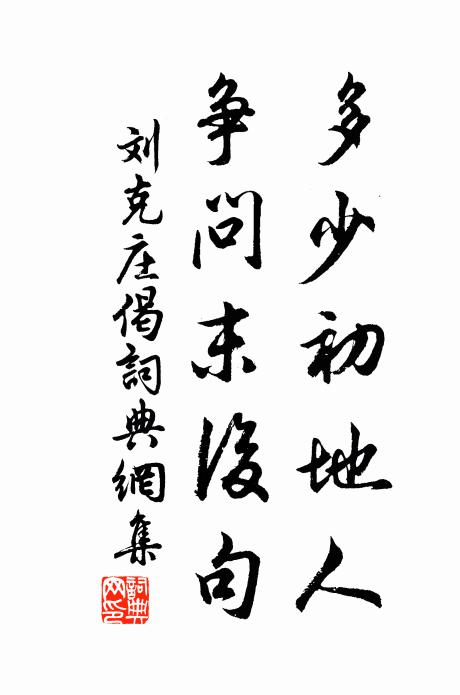 多少初地人
争問末後句
刘克庄偈詞典網集
詞典
网印